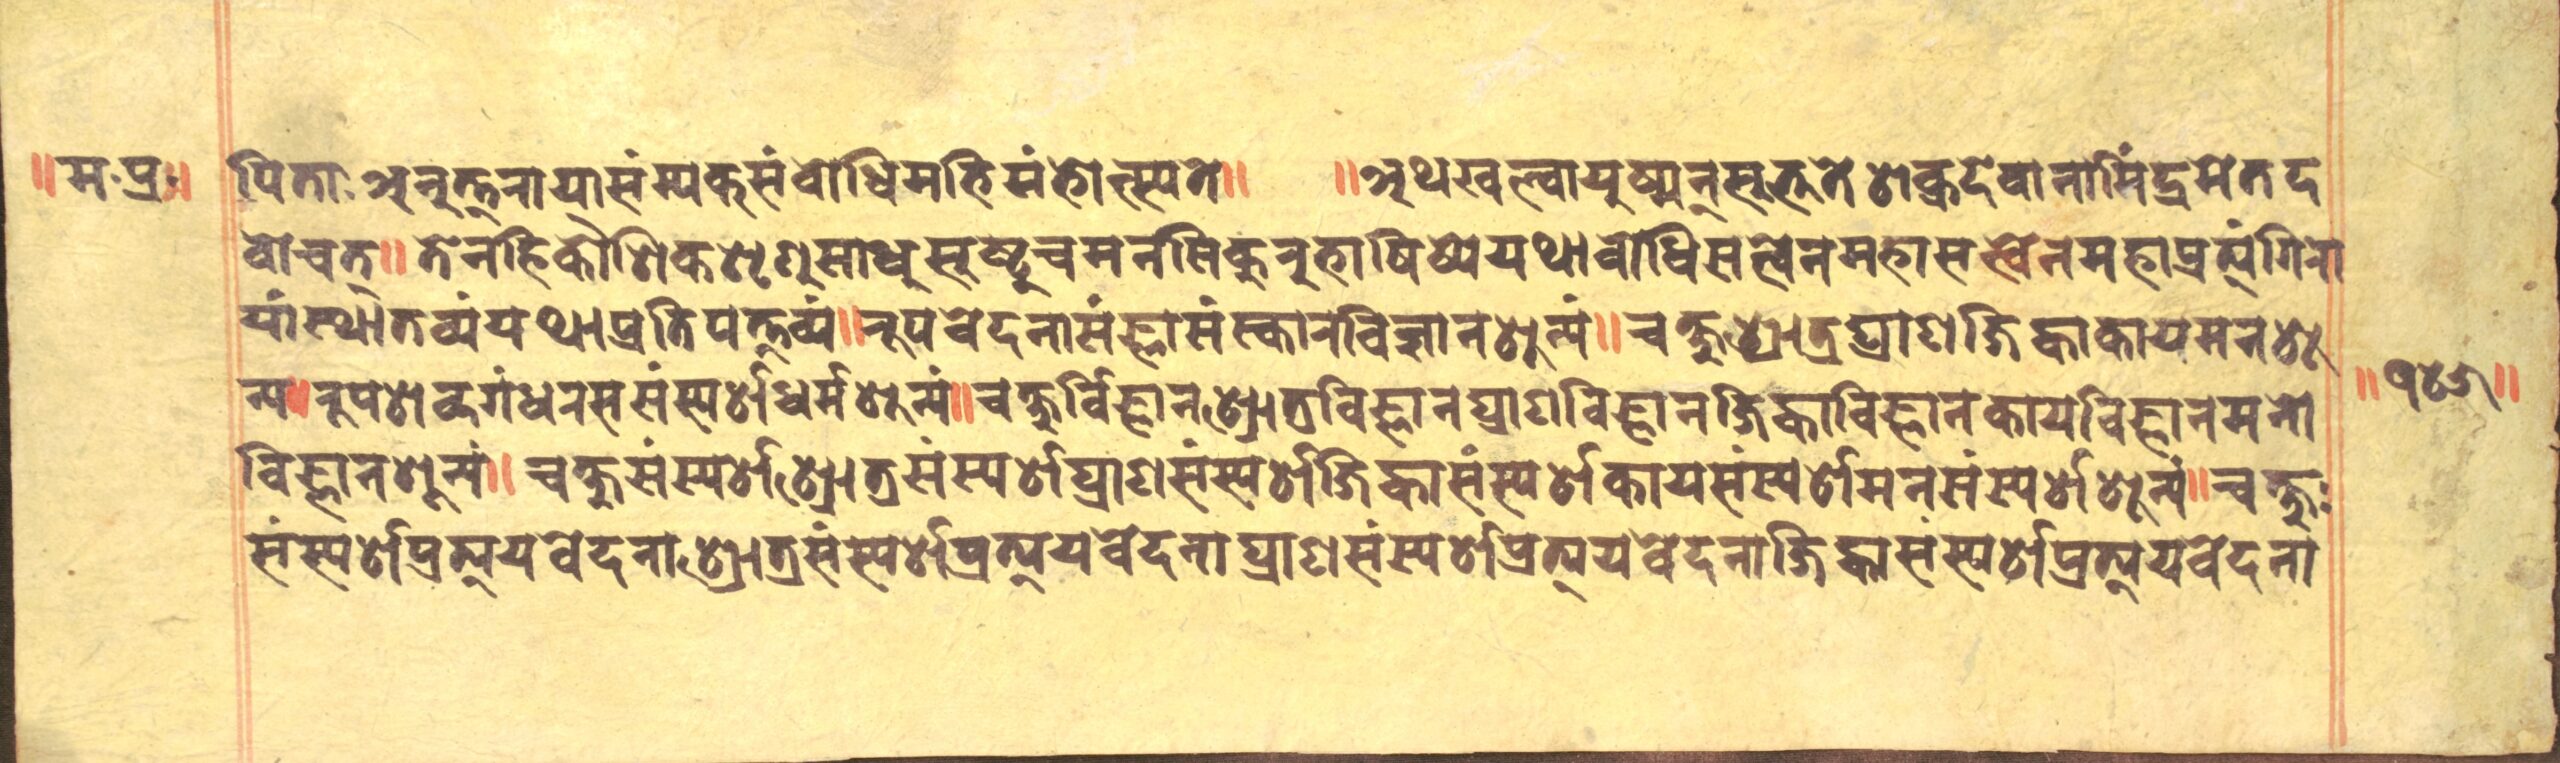 ॥म॰प्र॰॥
पिताः अनुत्त्नायासंम्यक्संवोधिमहिमंहोत्स्यते॥ ॥अथखल्वायुष्मन्सूहूतेशक्रदेवानामिंद्रमेतद
वोचत्॥तेनहिकौशिकशृणुसाधुसूष्टुचमनसिकुनुहाषिष्येयथावोधिसत्वेनमहासत्वेनमहाप्रत्यंगिना
यांस्थातव्यंयथाप्रतिपत्त्व्यं॥नूपवेदनासंह्नासंस्कानविज्ञानशून्यं॥चक्षुश्रोत्रघ्राणजिह्वाकायमनशू
न्य॥नूपशव्दगंधनससंस्पर्शधर्मशून्यं॥चक्षुर्विह्नानश्रोत्रविह्नानघ्राणविह्नानजिह्वाविह्नानकायविह्नानमनो
॥१८७॥
विह्नानशून्यं॥चक्षुसंस्पर्शश्रोत्रसंस्पर्शघ्राणसंस्पर्शजिह्वासंस्पर्शकायसंस्पर्शमनसंस्पर्शशून्यं॥चक्षुः
संस्पर्शप्रत्ययवेदनाश्रोत्रसंस्पर्शप्रत्ययवेदनाघ्राणसंस्पर्शप्रत्ययवेदनाजिह्वासंस्पर्शप्रत्ययवेदना